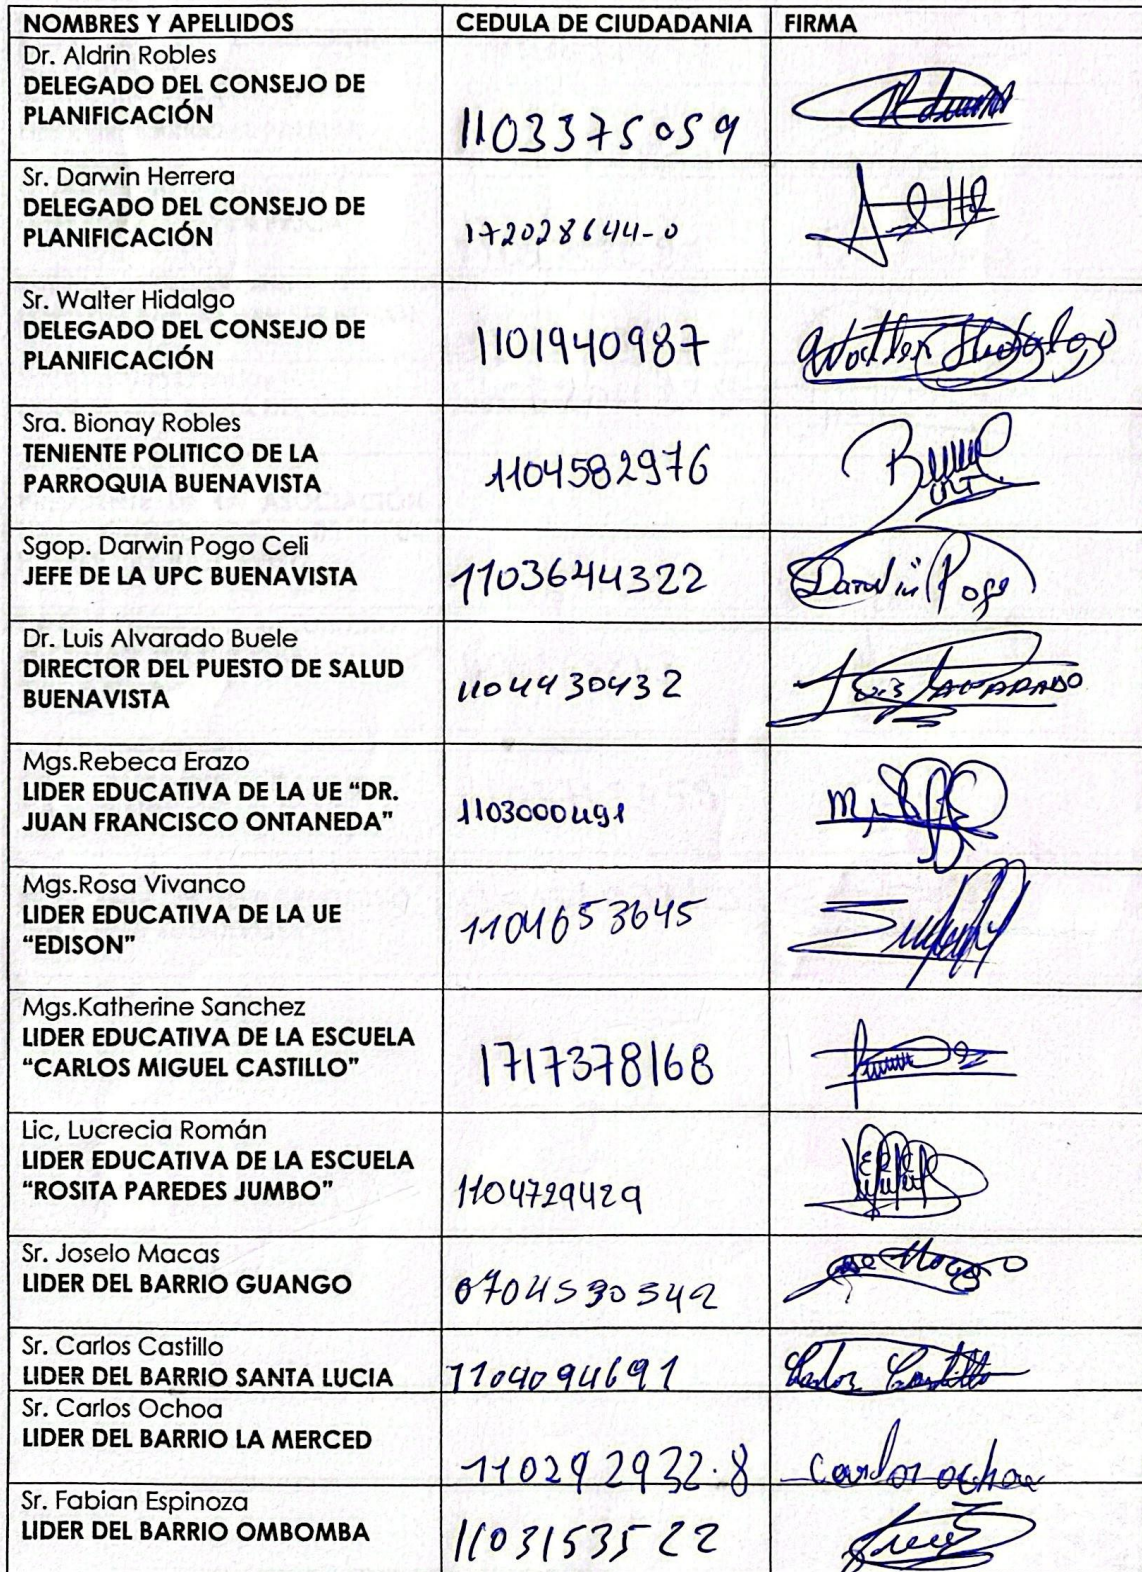 NOMBRES Y APELLIDOS CEDULA DE CIUDADANIA FIRMA
Dr. Aldrin Robles
DELEGADO DEL CONSEJO DE
PLANIFICACIÓN
1103375059
Sr. Darwin Herrera
DELEGADO DEL CONSEJO DE
PLANIFICACIÓN
172028644-0
Sr. Walter Hidalgo
DELEGADO DEL CONSEJO DE
PLANIFICACIÓN
1101940987
Walter Hidalgo
Sra. Bionay Robles
TENIENTE POLITICO DE LA
PARROQUIA BUENAVISTA
1104582976
Sgop. Darwin Pogo Celi
JEFE DE LA UPC BUENAVISTA
1103644322
Darwin Pogo
Dr. Luis Alvarado Buele
DIRECTOR DEL PUESTO DE SALUD
BUENAVISTA
1104430432
Luis Alvarado
Mgs.Rebeca Erazo
LIDER EDUCATIVA DE LA UE “DR.
JUAN FRANCISCO ONTANEDA”
1103000491
Mgs.Rosa Vivanco
LIDER EDUCATIVA DE LA UE
“EDISON”
1104653645
Mgs.Katherine Sanchez
LIDER EDUCATIVA DE LA ESCUELA
“CARLOS MIGUEL CASTILLO”
1717378168
Lic, Lucrecia Román
LIDER EDUCATIVA DE LA ESCUELA
“ROSITA PAREDES JUMBO”
1104729429
Sr. Joselo Macas
LIDER DEL BARRIO GUANGO
0704530542
Sr. Carlos Castillo
LIDER DEL BARRIO SANTA LUCIA
1104094691
Carlos Castillo
Sr. Carlos Ochoa
LIDER DEL BARRIO LA MERCED
110292932-8
Carlos ochoa
Sr. Fabian Espinoza
LIDER DEL BARRIO OMBOMBA
1103153522